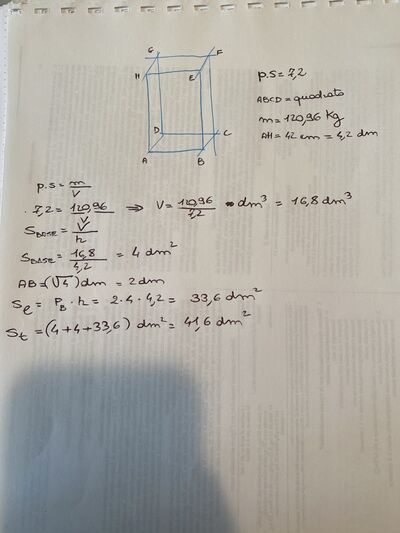 G F
H E
D C
A B
p.s = 7,2
ABCD = quadrato
m = 120,96 Kg
AH = 42 cm = 4,2 dm
p.s = m/V
7,2 = 120,96/V ⇒ V = 120,96/7,2 dm³ = 16,8 dm³
S_BASE = V/h
S_BASE = 16,8/4,2 = 4 dm²
AB = (√4) dm = 2 dm
S_l = P_B · h = 2 · 4 · 4,2 = 33,6 dm²
S_t = (4 + 4 + 33,6) dm² = 41,6 dm²